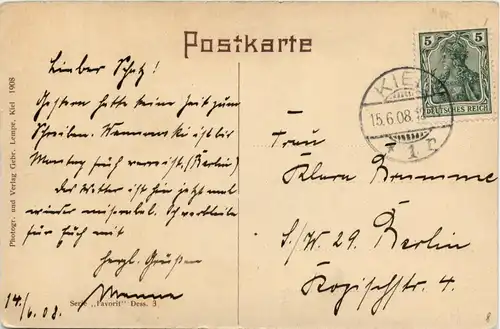 Postkarte
Lieber Schatz!
Gestern hatte keine Zeit zum
Schreiben. ist bis
Montag früh verreist. (Berlin)
Das Wetter ist hier jetzt mal
wieder miserabel.
für Euch mit
herzl. Grüßen
14./6.08.
Serie „Favorit" Dess. 3
Photogr. und Verlag Gebr. Lempe, Kiel 1908
5 5
DEUTSCHES REICH
KIEL
15.6.08.
1
Frau
Klara Bramme
S./W. 29. Berlin
Kopischstr. 4.